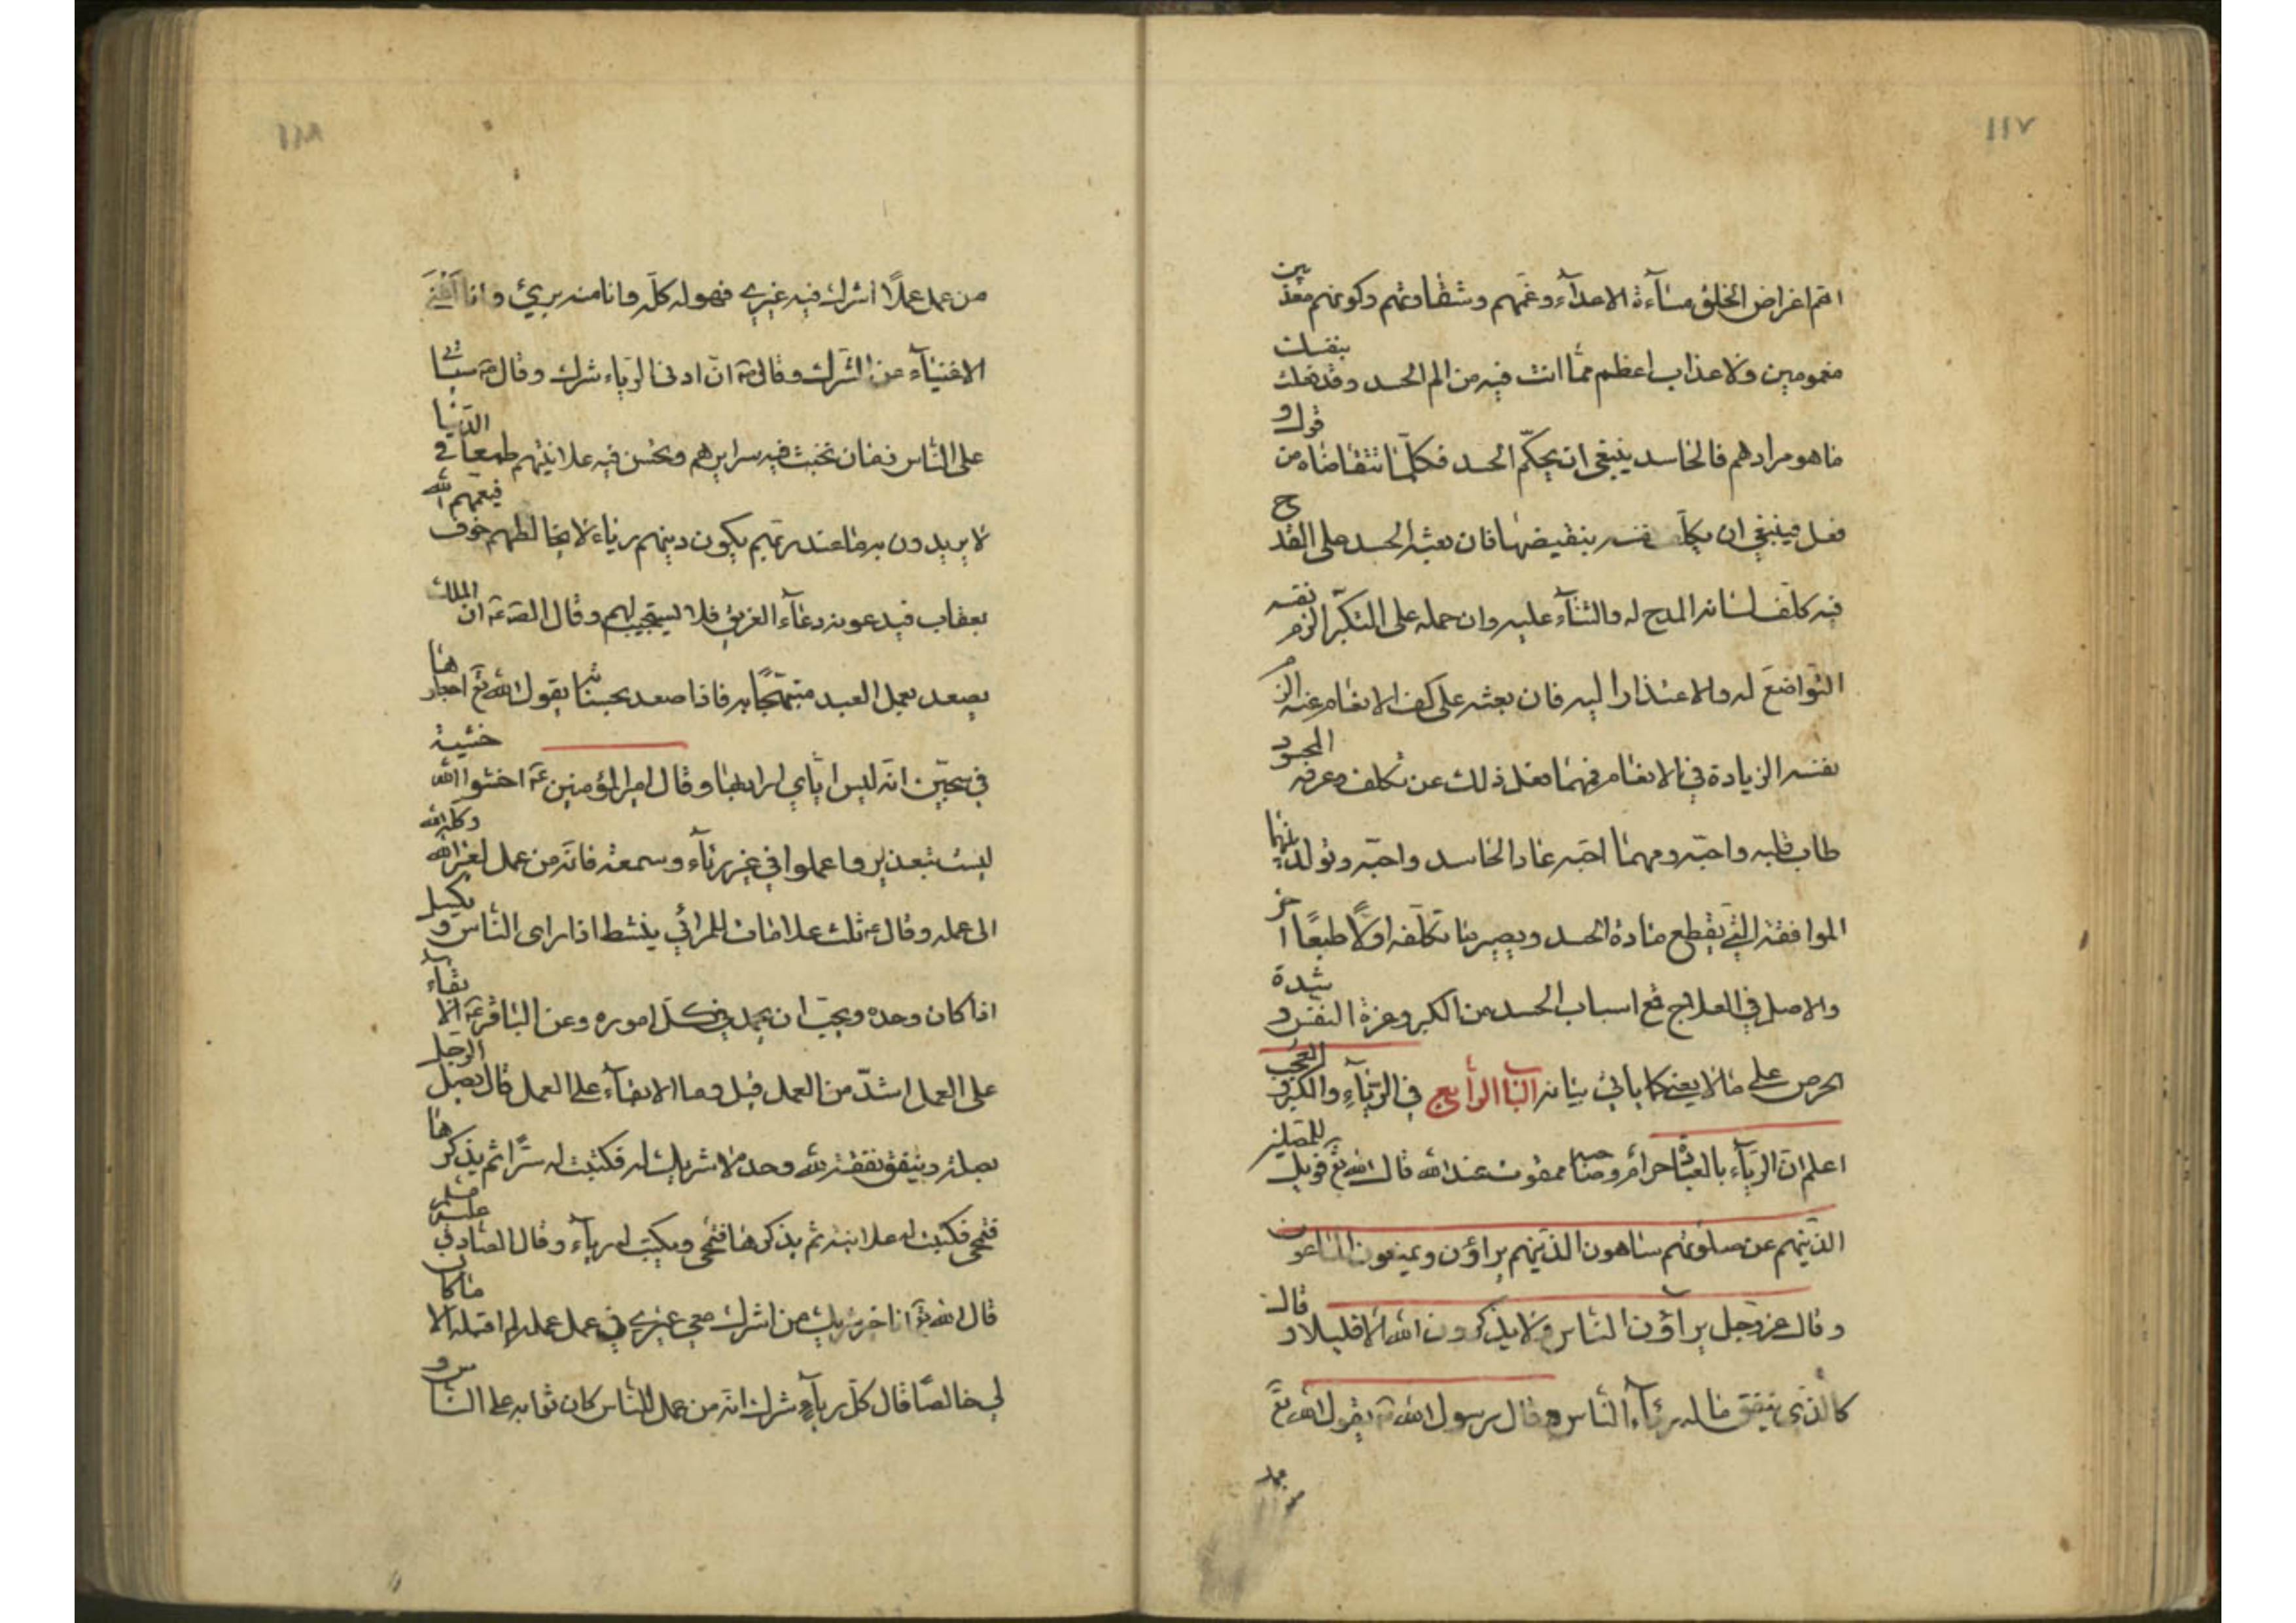 ١١٧
اهم اغراض الخلق مساءة الاعدآء وغمهم وشقاوتهم وكونهم معذبين
مغمومين ولا عذاب اعظم مما انت فيه من الم الحسد وقد فعلت بنفسك
ما هو مرادهم فالحاسد ينبغي ان يحكم الحسد فكلما تتقاضاه من قول و
فعل فينبغي ان يكلف نفسه بنقيضها فان بعثه الحسد على القدح
فيه كلف لسانه المدح له والثناء عليه وان حمله على التكبر الزم نفسه
التواضع له والاعتذار اليه فان بعثه على كف الانعام عنه الزم
نفسه الزيادة في الانعام فمهما فعل ذلك عن تكلف وعرفه المحسود
طاب قلبه واحبه ومهما احبه عاد الحاسد واحبه وتولد بينهما
الموافقة التي تقطع مادة الحسد ويصير ما تكلفه اولاً طبعاً اخر
والاصل في العلاج قمع اسباب الحسد من الكبر وعزة النفس و شدة
الحرص على ما لا يعني كما ياتي بيانه الباب الرابع في الريآء والكبر و العجب
اعلم ان الريآء بالعبادة حرام وصاحبه ممقوت عند الله قال الله تع فويل للمصلين
الذينهم عن صلوتهم ساهون الذينهم يراؤن ويمنعون الماعون
وقال عز وجل يرآؤن الناس ولا يذكرون الله الا قليلا و قال
كالذي ينفق ماله رئآء الناس وقال رسول الله ص يقول الله تع
من عمل
١١٨
من عمل عملاً اشرك فيه غيري فهو له كله وانا منه بريئ وانا اغنى
الاغنيآء عن الشرك وقال ص ان ادنى الرياء شرك وقال ص سياتي
على الناس زمان تخبث فيه سرايرهم وتحسن فيه علانيتهم طمعا في الدنيا
لا يريدون به ما عند ربهم يكون دينهم رياء لا يخالطهم خوف فيعمهم الله
بعقاب فيدعونه دعآء الغريق فلا يستجيب لهم وقال ص ان الملك
يصعد بعمل العبد مبتهجا به فاذا صعد بحسناته يقول الله تع اجعلوها
في سجين انه ليس اياي اراد بها وقال امير المؤمنين ع اخشوا الله خشية
ليست بتعذير واعملوا في غير ريآء وسمعة فانه من عمل لغير الله وكله الله
الى عمله وقال ع ثلث علامات للمرائي ينشط اذا راى الناس و يكسل
اذا كان وحده ويحب ان يحمد في كل اموره وعن الباقر ع الا بقآء
على العمل اشد من العمل قيل وما الابقآء على العمل قال يصل الرجل
بصلة وينفق نفقة لله وحده لا شريك له فكتبت له سراً ثم يذكرها
فتمحى فكتبت له علانية ثم يذكرها فتمحى ويكتب له رياء وقال الصادق عليه السلم
قال الله تع انا خير شريك من اشرك معي غيري في عمل عمله لم اقبله الا ما كان
لي خالصا قال كل ريآء شرك انه من عمل للناس كان ثوابه على الناس و